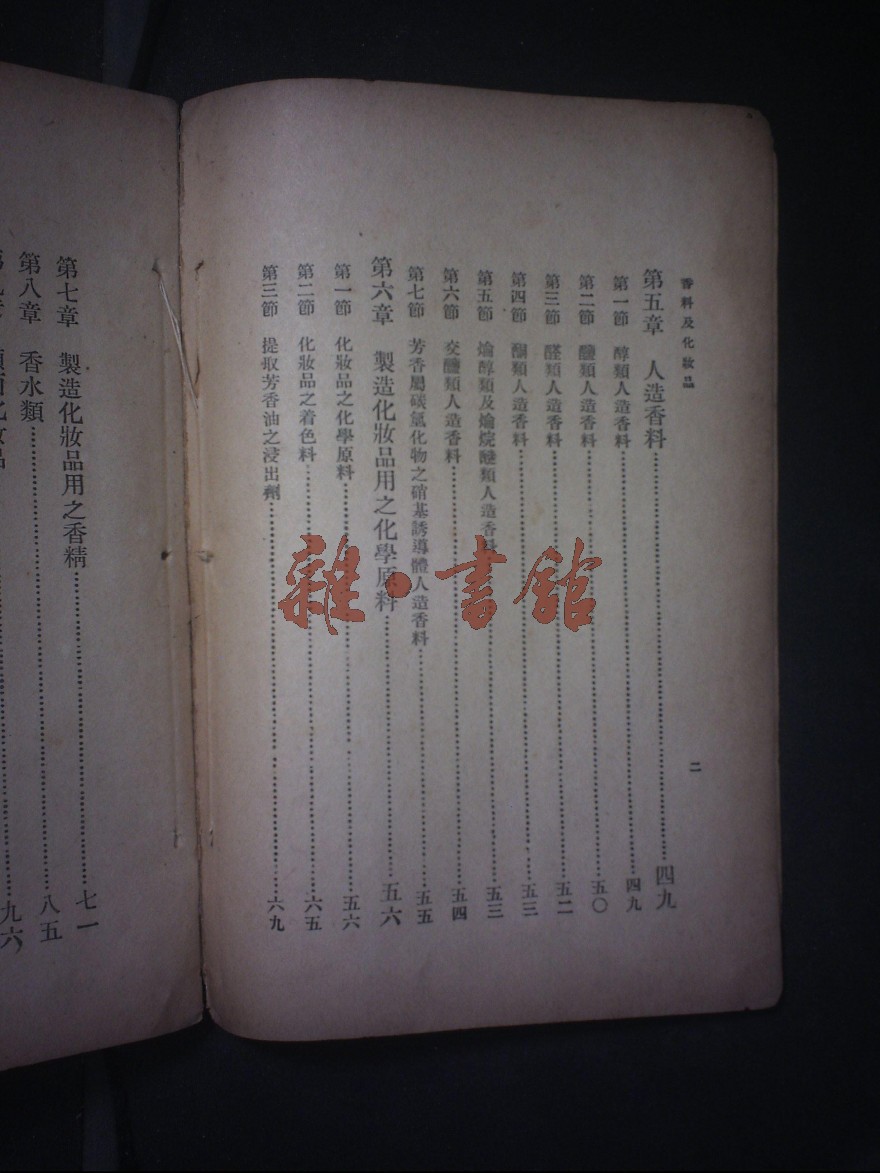 香料及化妝品
二
第五章 人造香料……四九
第一節 醇類人造香料……四九
第二節 醚類人造香料……五〇
第三節 醛類人造香料……五二
第四節 酮類人造香料……五三
第五節 醇類及 類人造香料……五三
第六節 類人造香料……五四
第七節 芳香屬碳氫化物之硝基誘導體人造香料……五五
第六章 製造化妝品用之化學原料……五六
第一節 化妝品之化學原料……五六
第二節 化妝品之着色料……六五
第三節 提取芳香油之浸出劑……六九
第七章 製造化妝品用之香精……七一
第八章 香水類……八五
化妝品……九六
雜·書館